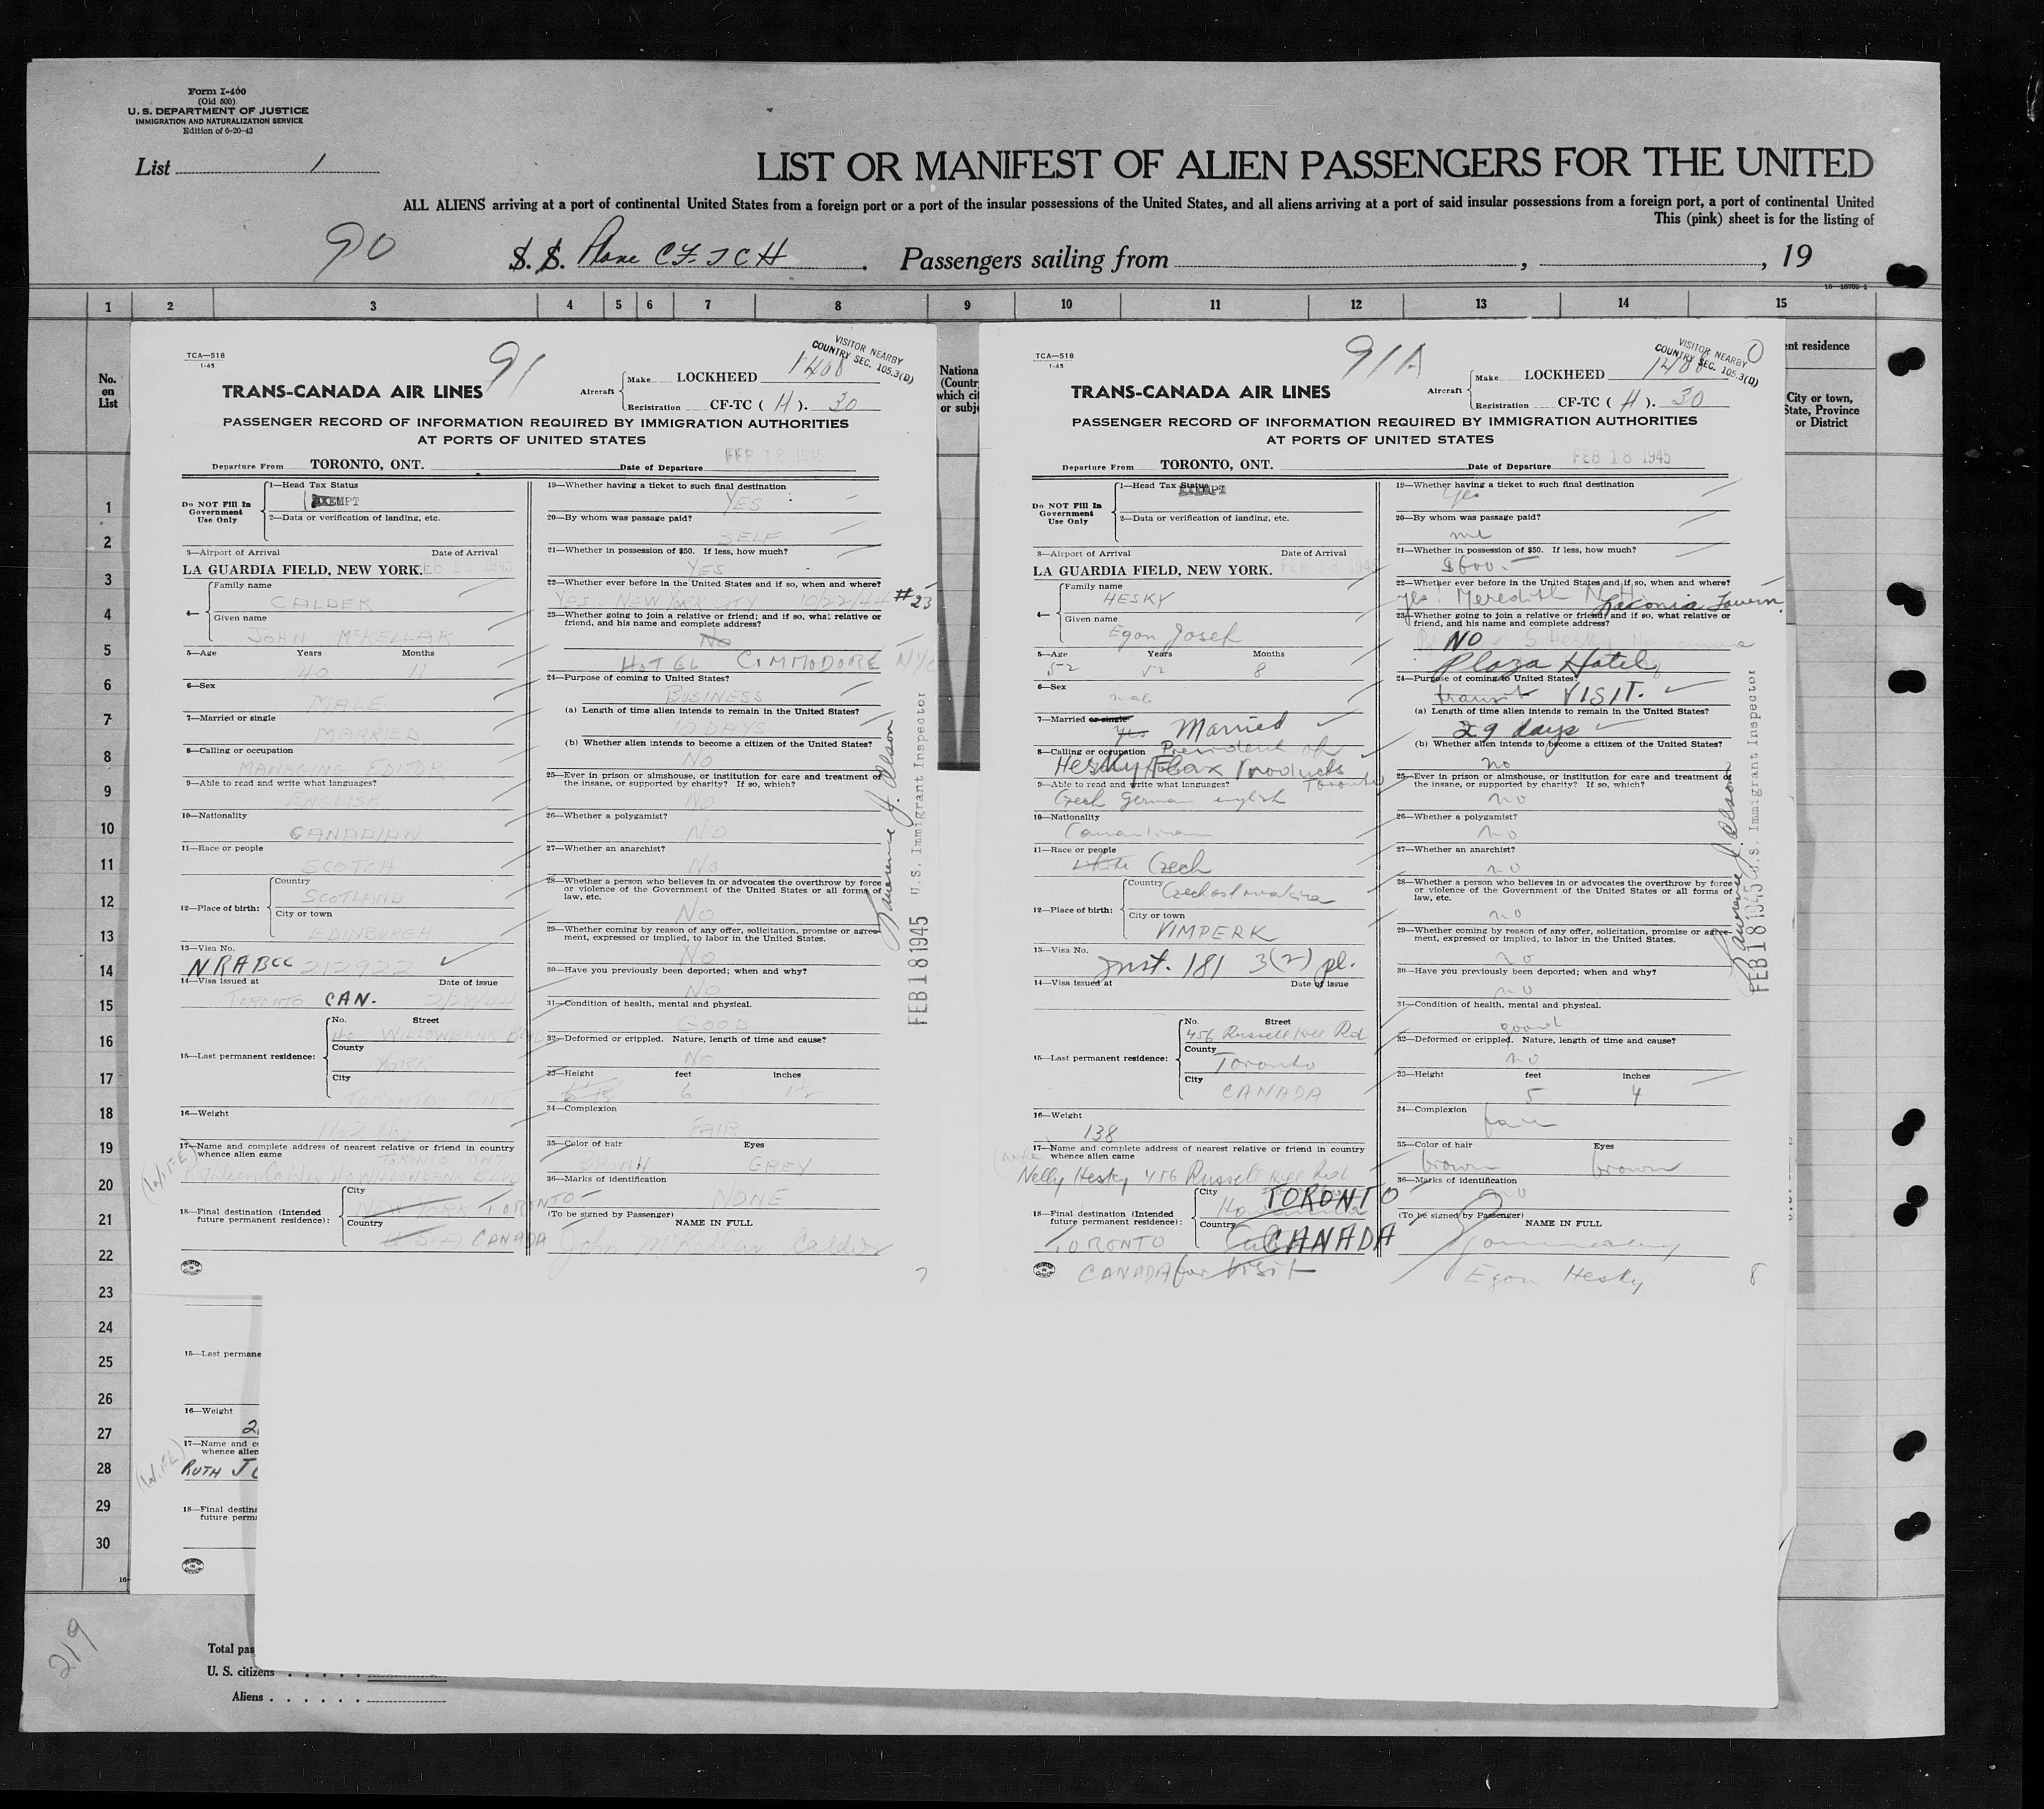 Form I-400
(Old 500)
U. S. DEPARTMENT OF JUSTICE
IMMIGRATION AND NATURALIZATION SERVICE
Edition of 6-20-42
List 1
LIST OR MANIFEST OF ALIEN PASSENGERS FOR THE UNITED
ALL ALIENS arriving at a port of continental United States from a foreign port or a port of the insular possessions of the United States, and all aliens arriving at a port of said insular possessions from a foreign port, a port of continental United
This (pink) sheet is for the listing of
90
S. S. Plane CF. TCH. Passengers sailing from , , 19
1 2 3 4 5 6 7 8 9 10 11 12 13 14 15
No. on List
Nationa
(Countr
which cit
or subje
nt residence
City or town,
State, Province
or District
1
2
3
4
5
6
7
8
9
10
11
12
13
14
15
16
17
18
19
20
21
22
23
24
25
26
27
28
29
30
TCA—518
1-45
91
VISITOR NEARBY
COUNTRY SEC. 105.3(D)
TRANS-CANADA AIR LINES
Aircraft
Make LOCKHEED 1408
Registration CF-TC ( H ). 30
PASSENGER RECORD OF INFORMATION REQUIRED BY IMMIGRATION AUTHORITIES
AT PORTS OF UNITED STATES
Departure From TORONTO, ONT. Date of Departure FEB 18 1945
Do NOT Fill In
Government
Use Only
1—Head Tax Status
EXEMPT
2—Data or verification of landing, etc.
3—Airport of Arrival Date of Arrival
LA GUARDIA FIELD, NEW YORK. FEB 18 1945
4—
Family name
CALDER
Given name
JOHN McKELLAR
5—Age Years Months
40 11
6—Sex
MALE
7—Married or single
MARRIED
8—Calling or occupation
MANAGING EDITOR
9—Able to read and write what languages?
ENGLISH
10—Nationality
CANADIAN
11—Race or people
SCOTCH
12—Place of birth:
Country
SCOTLAND
City or town
EDINBURGH
13—Visa No.
NRABCC 212922
14—Visa issued at Date of issue
TORONTO CAN. 2/28/44
15—Last permanent residence:
No. Street
40 WILLOWBANK BLVD
County
YORK
City
TORONTO ONT
16—Weight
17—Name and complete address of nearest relative or friend in country
whence alien came
(WIFE)
TORONTO ONT
Kathleen Calder 40 WILLOWBANK BLVD
18—Final destination (Intended
future permanent residence):
City
NEW YORK TORONTO
Country
U.S.A CANADA
19—Whether having a ticket to such final destination
YES
20—By whom was passage paid?
SELF
21—Whether in possession of $50. If less, how much?
YES
22—Whether ever before in the United States and if so, when and where?
YES NEW YORK CITY 10/22/44 #23
23—Whether going to join a relative or friend; and if so, what relative or
friend, and his name and complete address?
No
HOTEL COMMODORE NYC
24—Purpose of coming to United States?
BUSINESS
(a) Length of time alien intends to remain in the United States?
10 DAYS
(b) Whether alien intends to become a citizen of the United States?
NO
25—Ever in prison or almshouse, or institution for care and treatment of
the insane, or supported by charity? If so, which?
NO
26—Whether a polygamist?
NO
27—Whether an anarchist?
NO
28—Whether a person who believes in or advocates the overthrow by force
or violence of the Government of the United States or all forms of
law, etc.
NO
29—Whether coming by reason of any offer, solicitation, promise or agree-
ment, expressed or implied, to labor in the United States.
NO
30—Have you previously been deported; when and why?
NO
31—Condition of health, mental and physical.
GOOD
32—Deformed or crippled. Nature, length of time and cause?
NO
33—Height feet inches
6 1½
34—Complexion
FAIR
35—Color of hair Eyes
BROWN GREY
36—Marks of identification
NONE
(To be signed by Passenger)
NAME IN FULL
John McKellar Calder
7
FEB 18 1945 U.S. Immigrant Inspector
TCA—518
1-45
91A
VISITOR NEARBY
COUNTRY SEC. 105.3(D)
TRANS-CANADA AIR LINES
Aircraft
Make LOCKHEED 1408
Registration CF-TC ( H ). 30
PASSENGER RECORD OF INFORMATION REQUIRED BY IMMIGRATION AUTHORITIES
AT PORTS OF UNITED STATES
Departure From TORONTO, ONT. Date of Departure FEB 18 1945
Do NOT Fill In
Government
Use Only
1—Head Tax Status
EXEMPT
2—Data or verification of landing, etc.
3—Airport of Arrival Date of Arrival
LA GUARDIA FIELD, NEW YORK. FEB 18 194
4—
Family name
HESKY
Given name
Egon Josef
5—Age Years Months
52 52 8
6—Sex
male
7—Married or single
yes Married
8—Calling or occupation President of
Hesky Flax Products
Toronto
9—Able to read and write what languages?
Czech German english
10—Nationality
Canadian
11—Race or people
white Czech
12—Place of birth:
Country
Czechoslovakia
City or town
VIMPERK
13—Visa No.
Inst. 181 3(2) pl.
14—Visa issued at Date of issue
15—Last permanent residence:
No. Street
456 Russell Hill Rd
County
Toronto
City
CANADA
16—Weight
138
17—Name and complete address of nearest relative or friend in country
whence alien came
(wife)
Nelly Hesky 456 Russell Hill Rd
18—Final destination (Intended
future permanent residence):
City
TORONTO
Country
CANADA
TORONTO
CANADA for Visit
19—Whether having a ticket to such final destination
yes
20—By whom was passage paid?
me
21—Whether in possession of $50. If less, how much?
$600.-
22—Whether ever before in the United States and if so, when and where?
yes Meredith N.H. Laconia Tavern.
23—Whether going to join a relative or friend; and if so, what relative or
friend, and his name and complete address?
NO
Plaza Hotel
24—Purpose of coming to United States?
transit VISIT.
(a) Length of time alien intends to remain in the United States?
29 days
(b) Whether alien intends to become a citizen of the United States?
no
25—Ever in prison or almshouse, or institution for care and treatment of
the insane, or supported by charity? If so, which?
no
26—Whether a polygamist?
no
27—Whether an anarchist?
no
28—Whether a person who believes in or advocates the overthrow by force
or violence of the Government of the United States or all forms of
law, etc.
no
29—Whether coming by reason of any offer, solicitation, promise or agree-
ment, expressed or implied, to labor in the United States.
no
30—Have you previously been deported; when and why?
no
31—Condition of health, mental and physical.
good
32—Deformed or crippled. Nature, length of time and cause?
no
33—Height feet inches
5 4
34—Complexion
fair
35—Color of hair Eyes
brown brown
36—Marks of identification
no
(To be signed by Passenger)
NAME IN FULL
Egon Hesky
8
FEB 18 1945 U.S. Immigrant Inspector
15—Last permane
16—Weight
17—Name and c
whence alien
(WIFE)
RUTH
18—Final destina
future perma
219
Total pas
U. S. citizens
Aliens